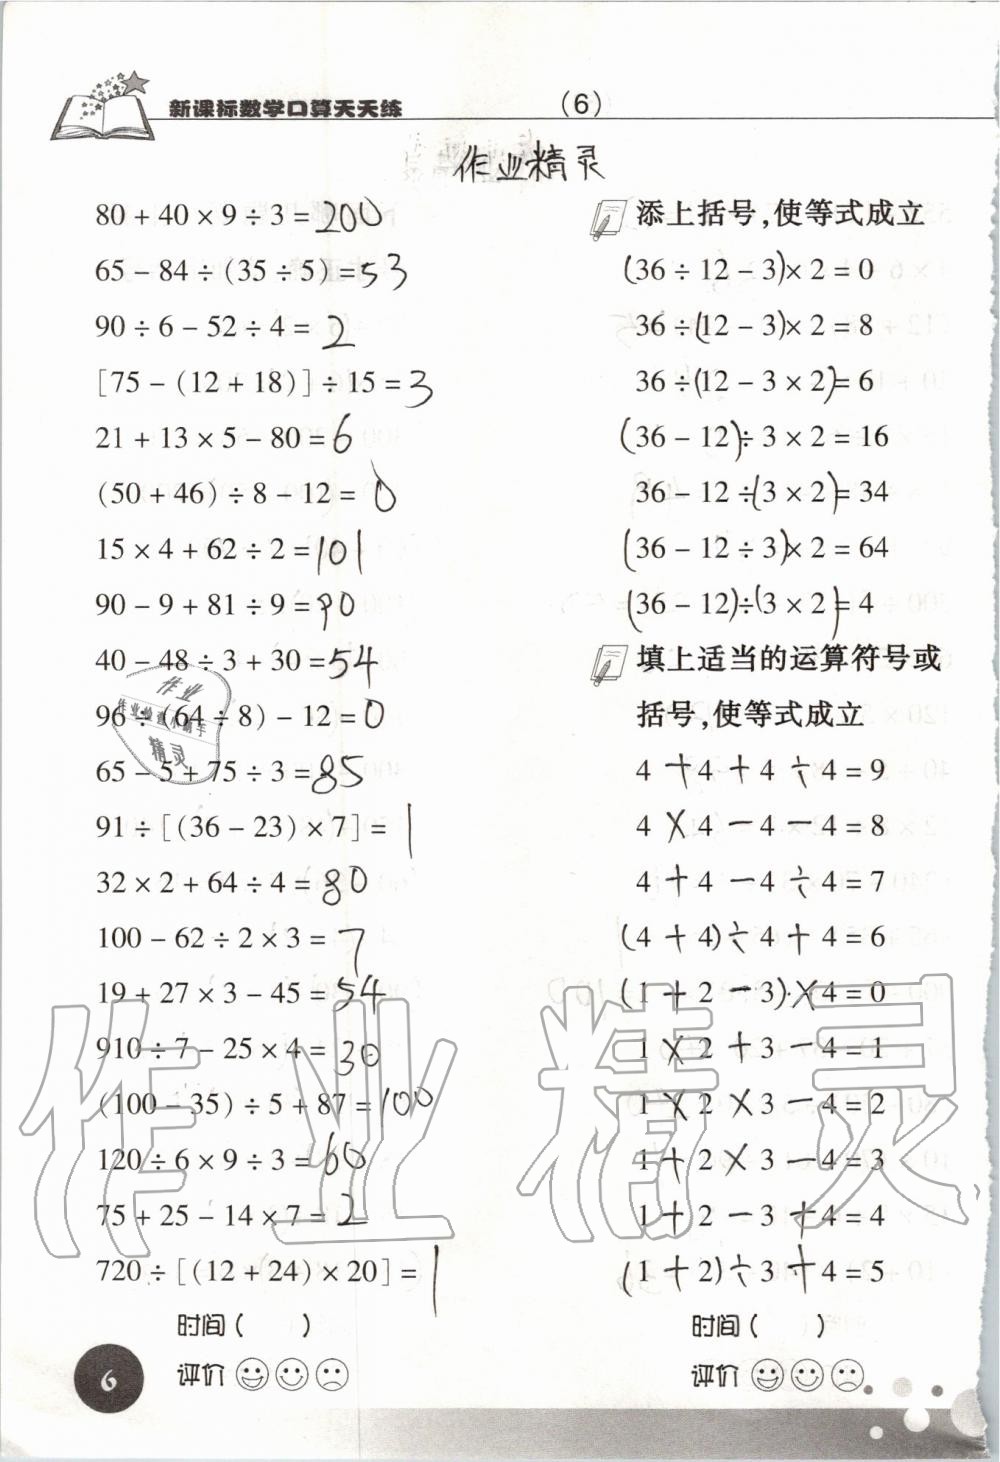 新课标数学口算天天练
(6)
作业精灵
80 + 40 × 9 ÷ 3 = 200
65 - 84 ÷ (35 ÷ 5) = 53
90 ÷ 6 - 52 ÷ 4 = 2
[75 - (12 + 18)] ÷ 15 = 3
21 + 13 × 5 - 80 = 6
(50 + 46) ÷ 8 - 12 = 0
15 × 4 + 62 ÷ 2 = 101
90 - 9 + 81 ÷ 9 = 90
40 - 48 ÷ 3 + 30 = 54
96 ÷ (64 ÷ 8) - 12 = 0
65 - 5 + 75 ÷ 3 = 85
91 ÷ [(36 - 23) × 7] = 1
32 × 2 + 64 ÷ 4 = 80
100 - 62 ÷ 2 × 3 = 7
19 + 27 × 3 - 45 = 54
910 ÷ 7 - 25 × 4 = 30
(100 - 35) ÷ 5 + 87 = 100
120 ÷ 6 × 9 ÷ 3 = 60
75 + 25 - 14 × 7 = 2
720 ÷ [(12 + 24) × 20] = 1
时间 (    )
评价
添上括号,使等式成立
(36 ÷ 12 - 3) × 2 = 0
36 ÷ (12 - 3) × 2 = 8
36 ÷ (12 - 3 × 2) = 6
(36 - 12) ÷ 3 × 2 = 16
36 - 12 ÷ (3 × 2) = 34
(36 - 12 ÷ 3) × 2 = 64
(36 - 12) ÷ (3 × 2) = 4
填上适当的运算符号或
括号,使等式成立
4 + 4 + 4 ÷ 4 = 9
4 × 4 - 4 - 4 = 8
4 + 4 - 4 ÷ 4 = 7
(4 + 4) ÷ 4 + 4 = 6
(1 + 2 - 3) × 4 = 0
1 × 2 + 3 - 4 = 1
1 × 2 × 3 - 4 = 2
1 + 2 × 3 - 4 = 3
1 + 2 - 3 + 4 = 4
(1 + 2) ÷ 3 + 4 = 5
时间 (    )
评价
6
作业
作业检查小帮手
精灵
作业精灵